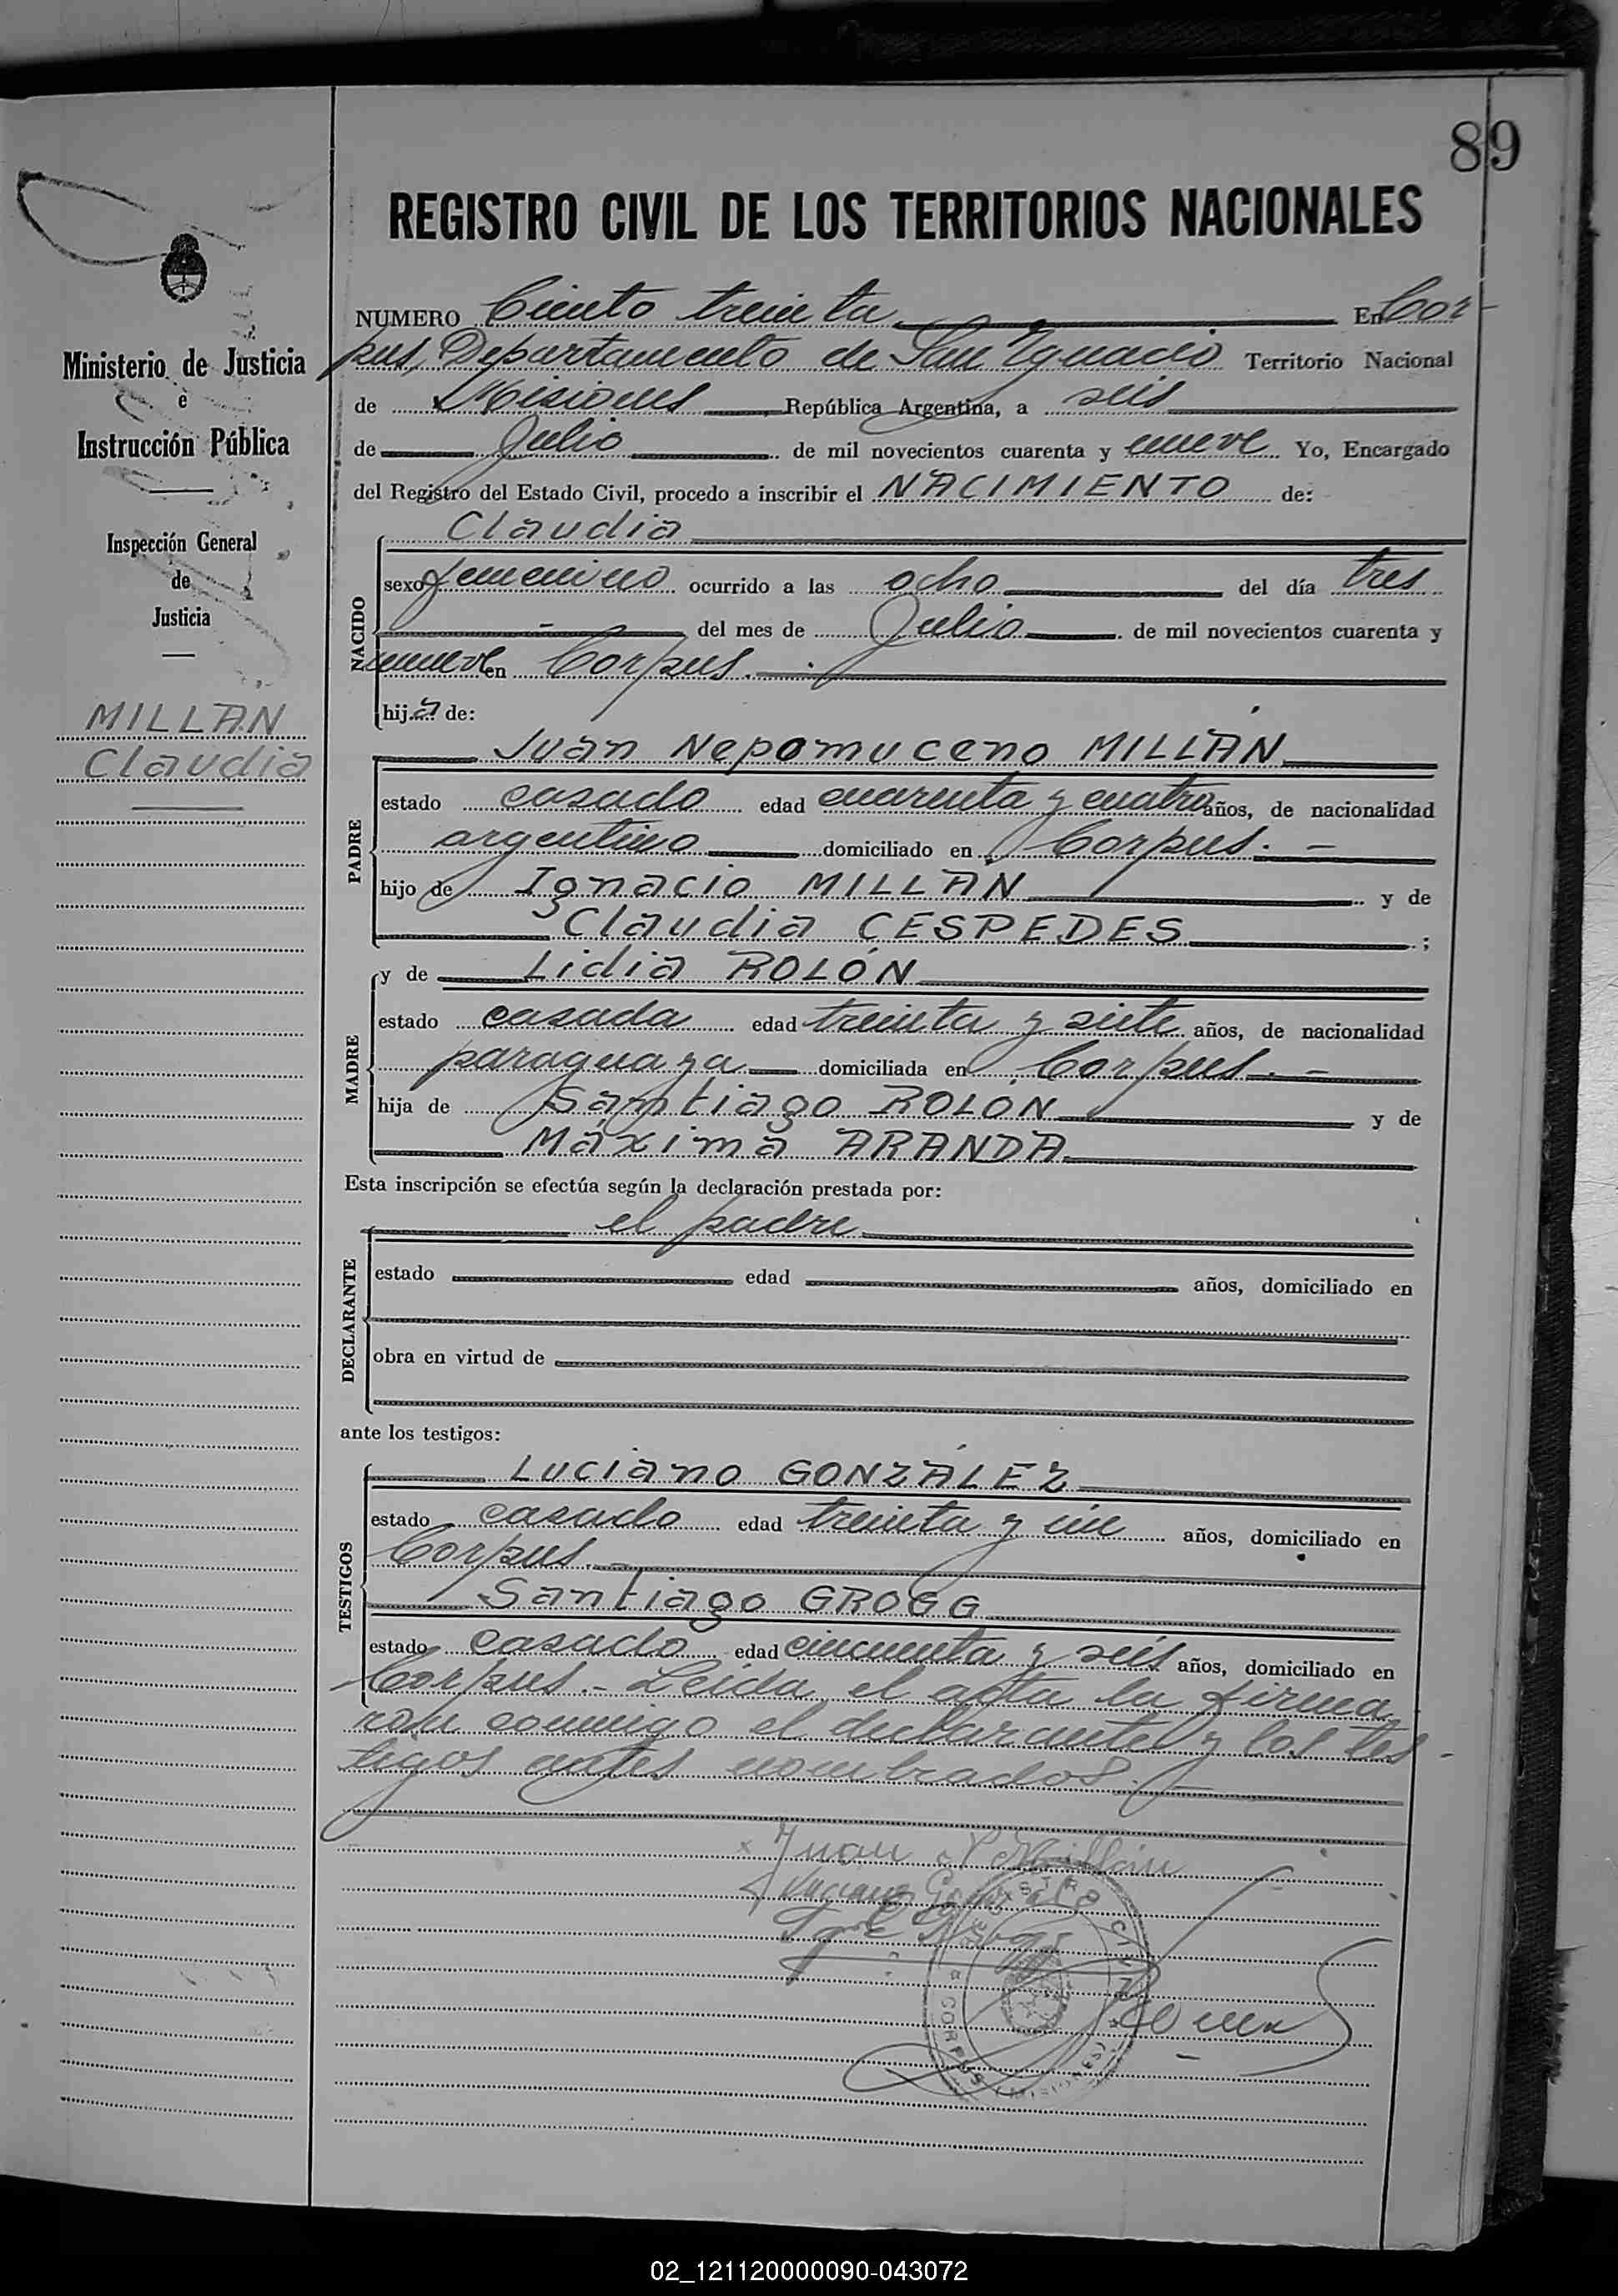 89
REGISTRO CIVIL DE LOS TERRITORIOS NACIONALES
Ministerio de Justicia
e
Instrucción Pública
Inspección General
de
Justicia
MILLÁN
Claudia
NUMERO Ciento treinta En Cor-
pus, Departamento de San Ignacio Territorio Nacional
de Misiones República Argentina, a seis
de Julio de mil novecientos cuarenta y nueve Yo, Encargado
del Registro del Estado Civil, procedo a inscribir el NACIMIENTO de:
NACIDO
Claudia
sexo femenino ocurrido a las ocho del día tres
- del mes de Julio de mil novecientos cuarenta y
nueve en Corpus.
hija de:
PADRE
Juan Nepomuceno MILLÁN
estado casado edad cuarenta y cuatro años, de nacionalidad
argentino domiciliado en Corpus. -
hijo de Ignacio MILLÁN y de
Claudia CESPEDES ;
MADRE
y de Lidia ROLÓN
estado casada edad treinta y siete años, de nacionalidad
paraguaya domiciliada en Corpus. -
hija de Santiago ROLÓN y de
Máxima ARANDA
Esta inscripción se efectúa según la declaración prestada por:
DECLARANTE
el padre
estado edad años, domiciliado en
obra en virtud de
ante los testigos:
TESTIGOS
Luciano GONZÁLEZ
estado casado edad treinta y un años, domiciliado en
Corpus. -
Santiago GROGG
estado casado edad cincuenta y seis años, domiciliado en
Corpus. - Leída el acta la firma
ron conmigo el declarante y los tes-
tigos antes nombrados. -
Juan N Millán
Luciano González
REGISTRO CIVIL
CORPUS (MISIONES)
02_121120000090-043072